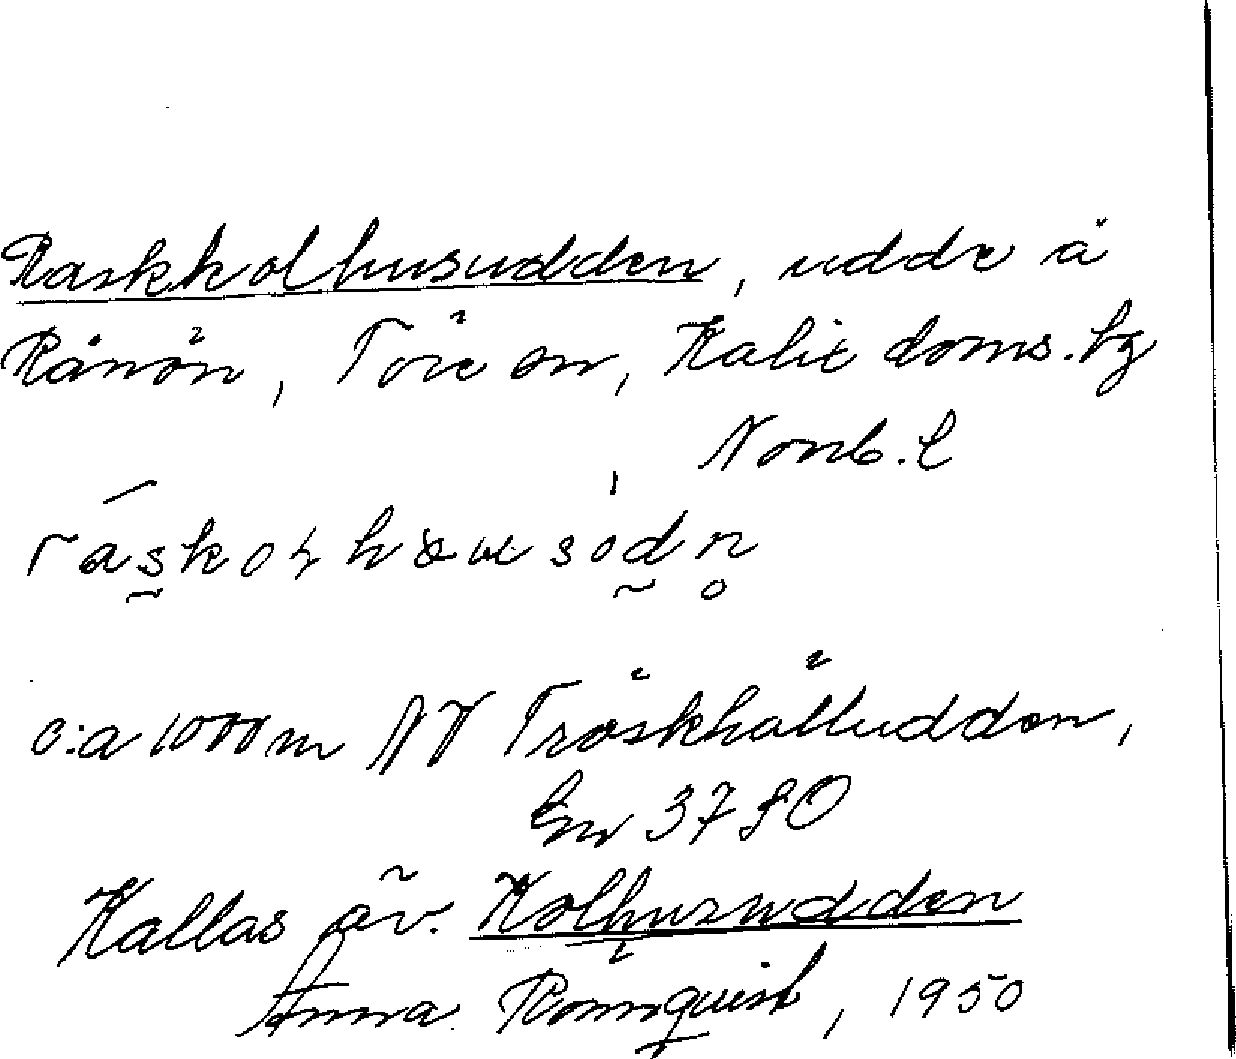 Raskkolhusudden, udde å
Rånön, Töre sn, Kalix doms. bg
Norrb. l
c:a 1000 m NV Tröskhålludden,
En 3780
Kallas äv. Kolhusudden
Anna Rönnquist, 1950